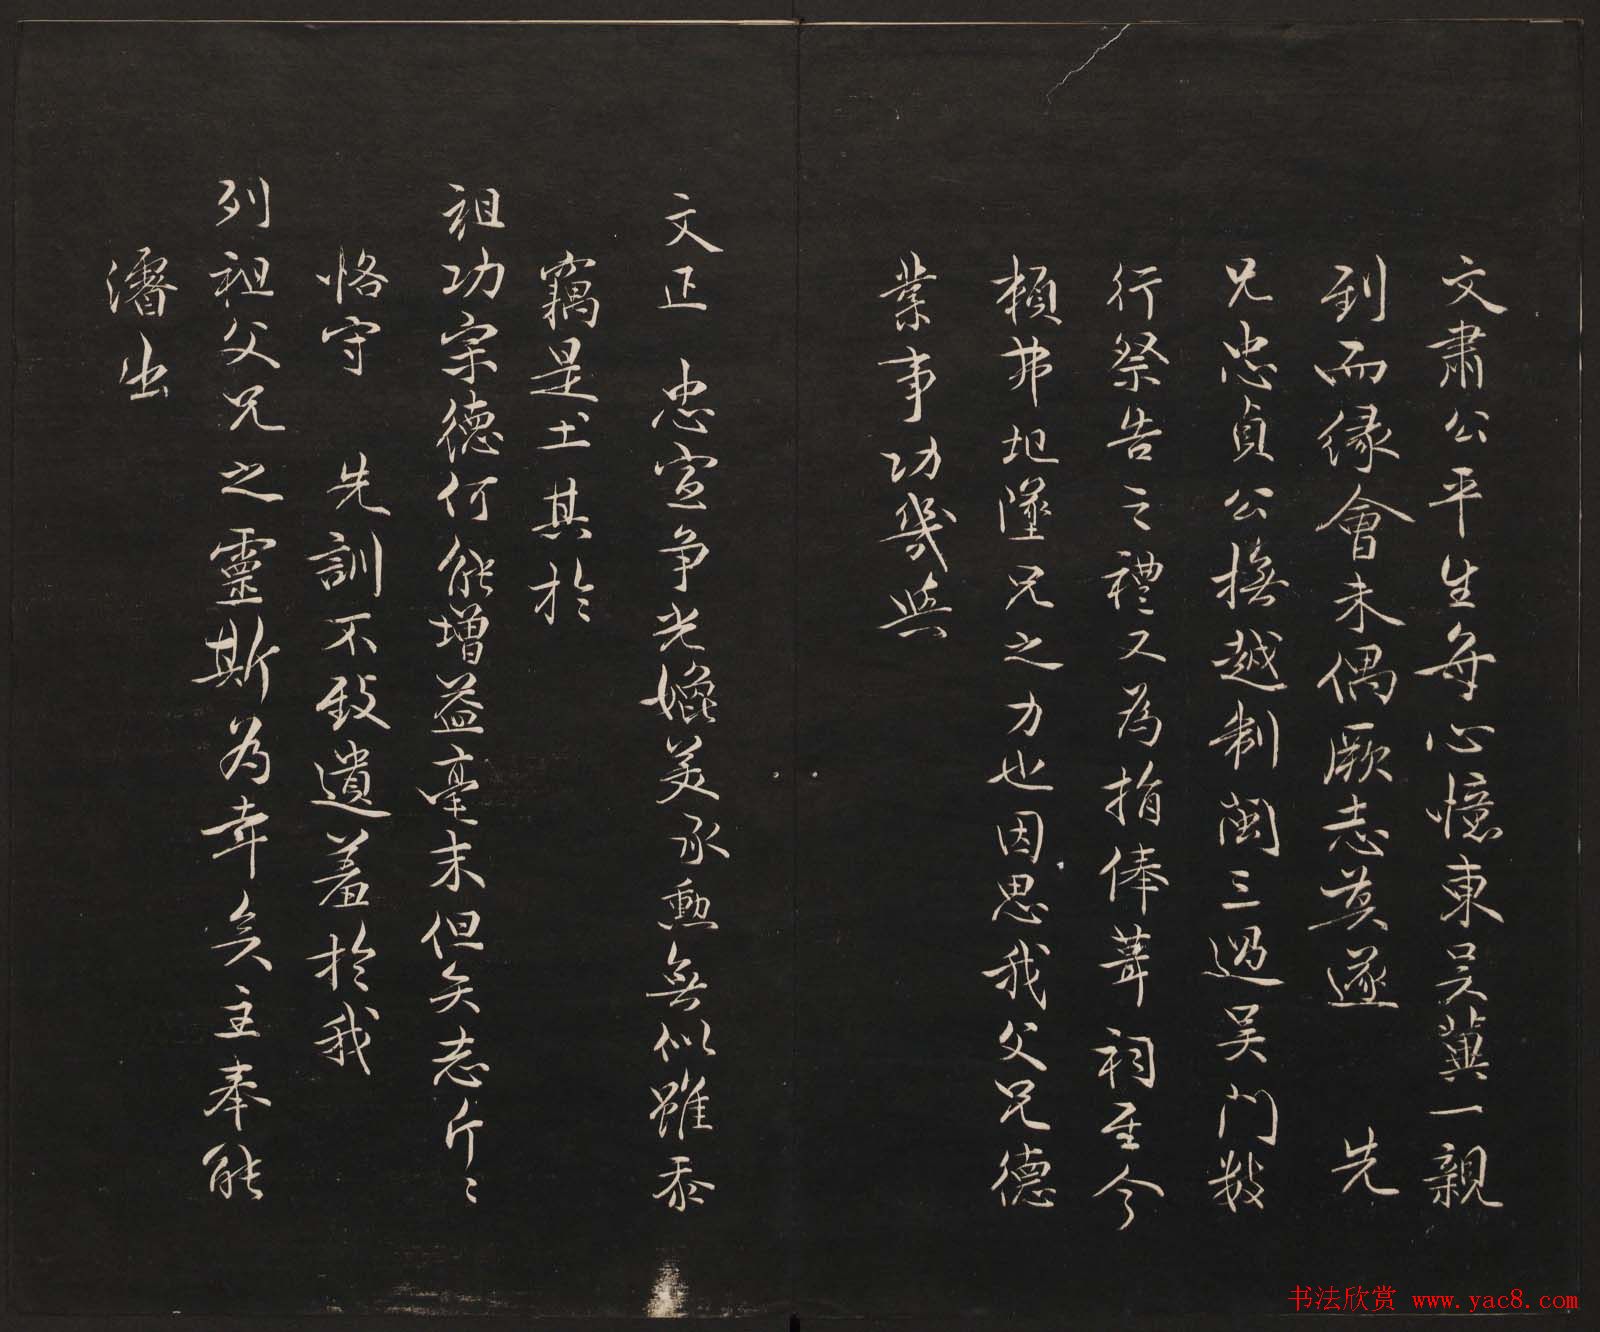 文肅公平生每心憶東吳冀一親
到而緣會未偶厥志莫遂　先
兄忠貞公撫越制閩三過吳門數
行祭告之禮又為捐俸葺祠至今
頼弗圯墜兄之力也因思我父兄德
業事功幾與
文正　忠宣爭光媲美承勳無似雖忝
竊是土其於
祖功宗德何能增益毫末但矢志斤〻
恪守　先訓不致遺羞於我
列祖父兄之靈斯為幸矣主奉能
濬出
书法欣赏 www.yac8.com